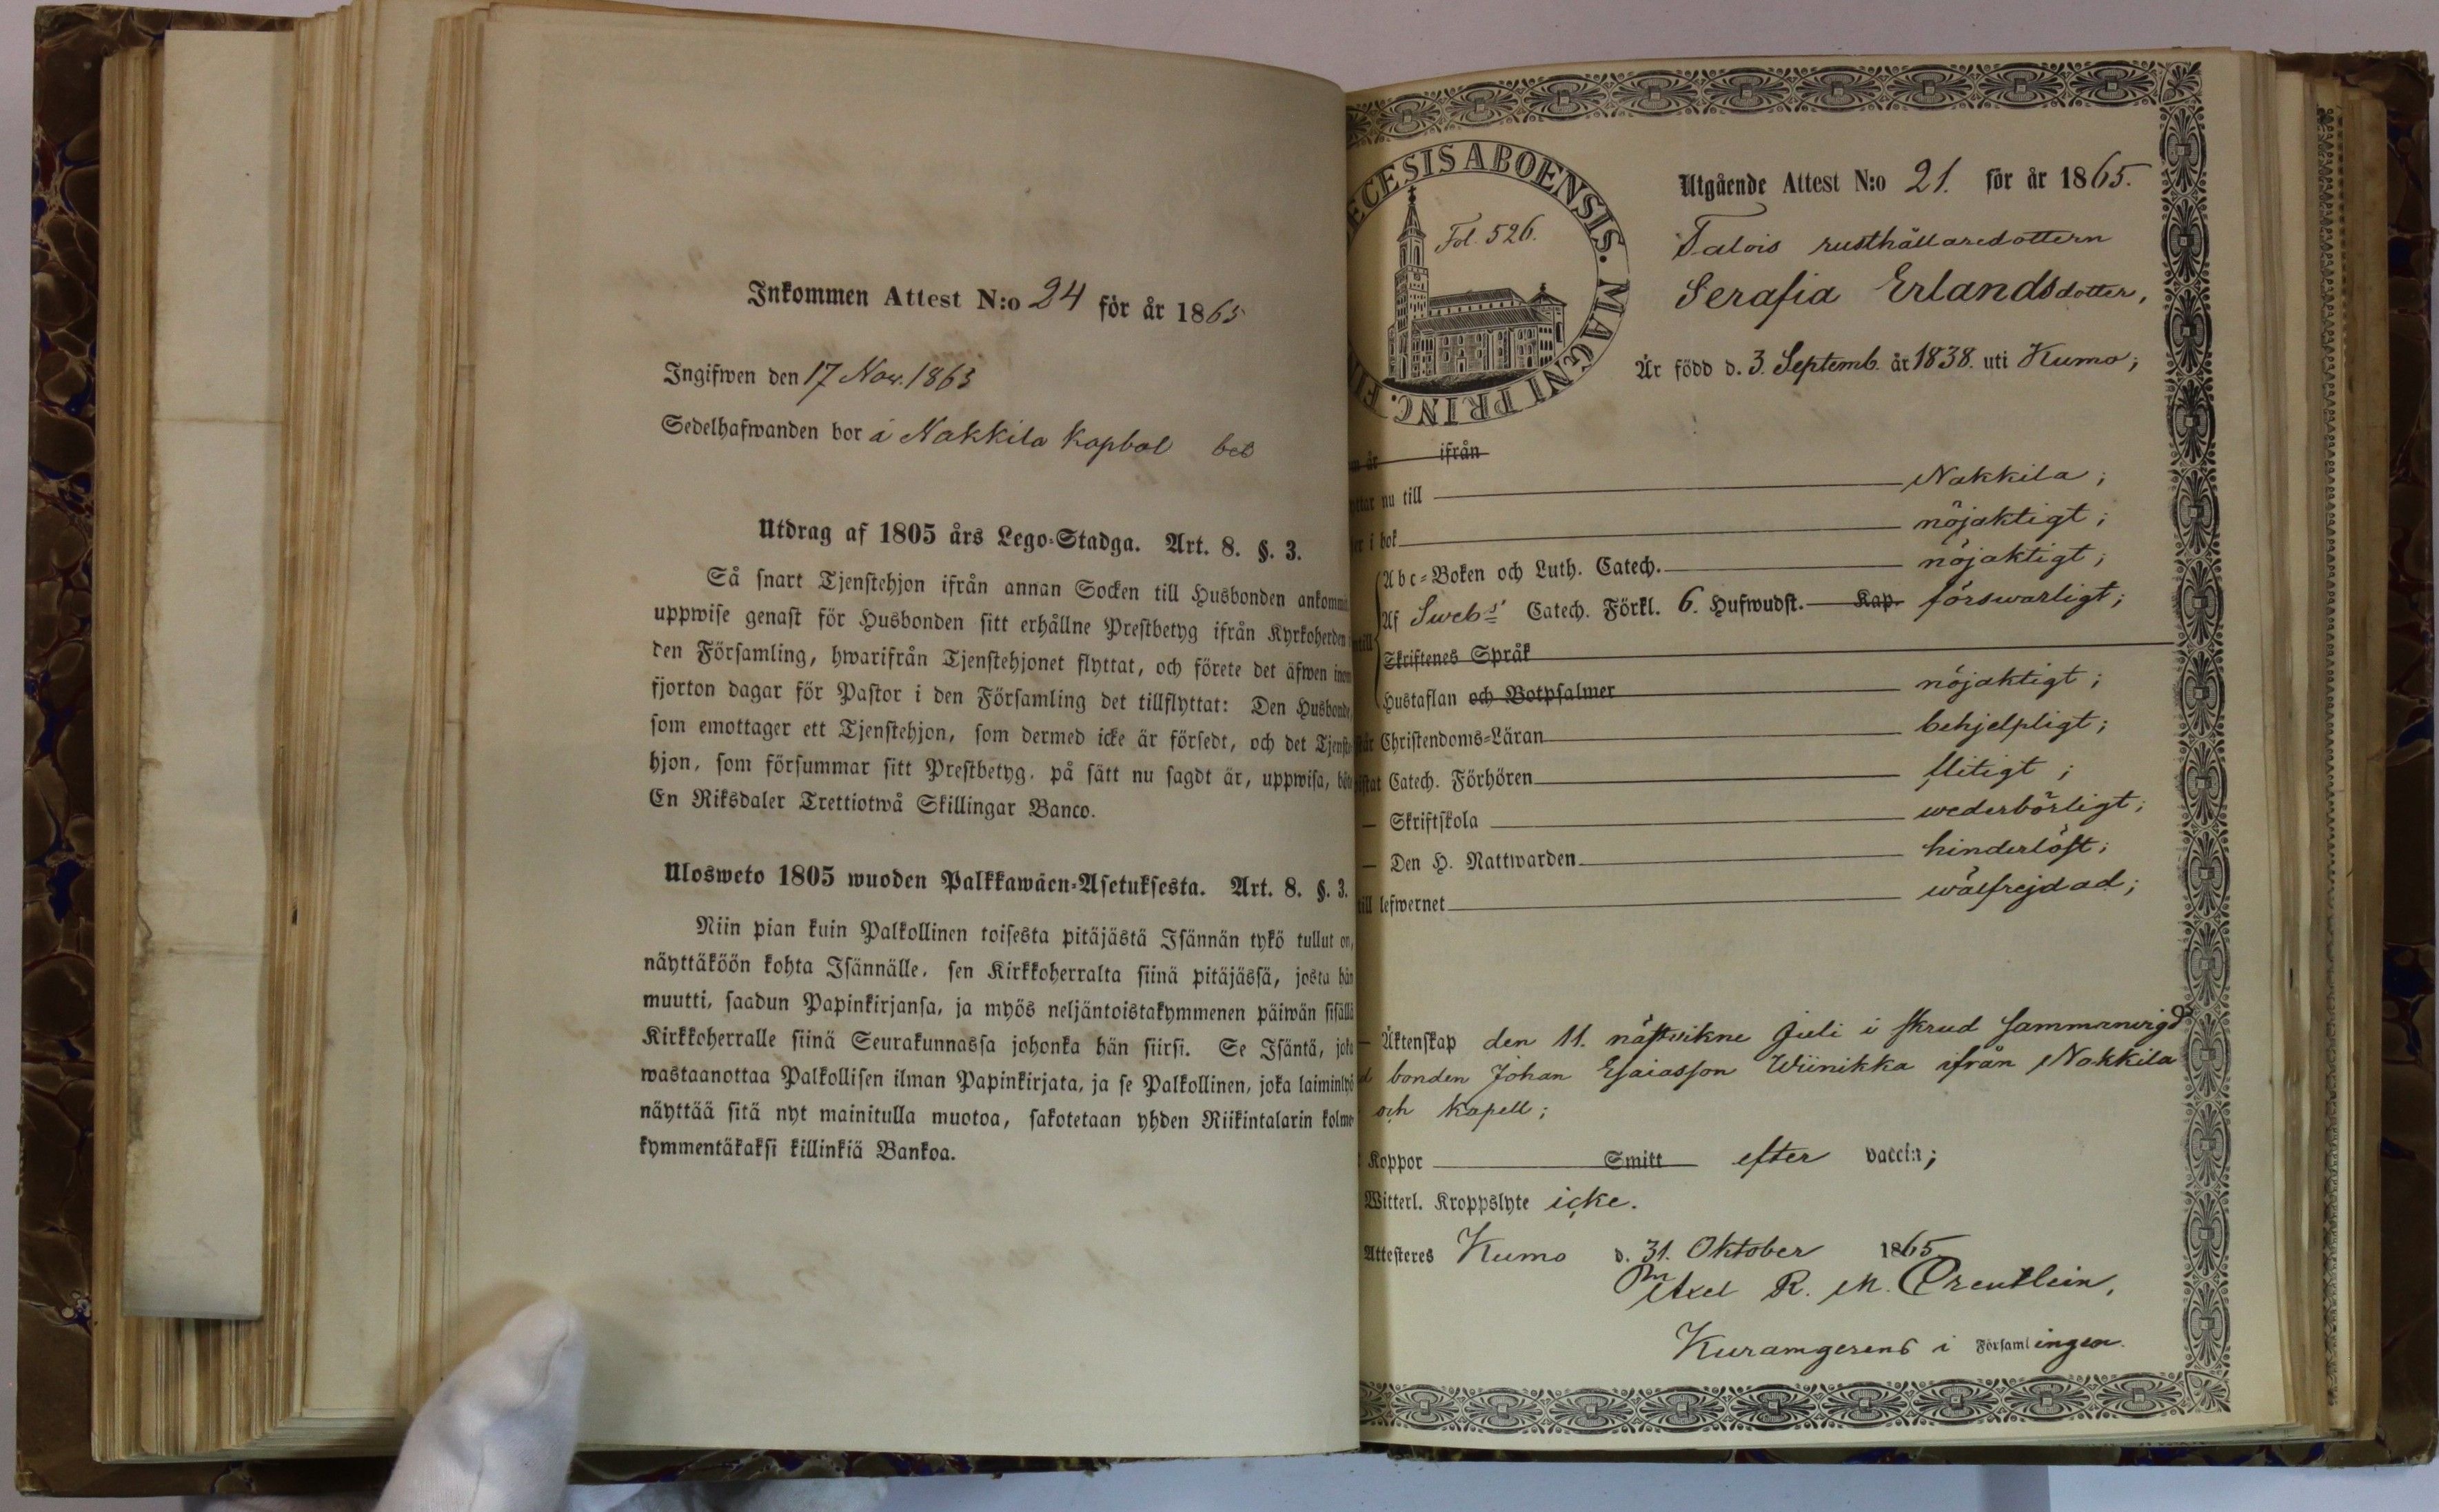 Inkommen Attest N:o 24 för år 1865
Ingifwen den 17 Nov. 1865
Sedelhafwanden bor å Nakkila Kapbol
Utdrag af 1805 års Lego-Stadga. Art. 8. §. 3.
Så snart Tjenstehjon ifrån annan Socken till Husbonden ankommit
uppwise genast för Husbonden sitt erhållne Prestbetyg ifrån Kyrkoherden i
den Församling, hwarifrån Tjenstehjonet flyttat, och förete det äfwen inom
fjorton dagar för Pastor i den Församling det tillflyttat: Den Husbonde,
som emottager ett Tjenstehjon, som dermed icke är försedt, och det Tjenste-
hjon, som försummar sitt Prestbetyg, på sätt nu sagdt är, uppwisa, böte
En Riksdaler Trettiotwå Skillingar Banco.
Ulosweto 1805 wuoden Palkkawäen-Asetuksesta. Art. 8. §. 3.
Niin pian kuin Palkollinen toisesta pitäjästä Isännän tykö tullut on,
näyttäköön kohta Isännälle, sen Kirkkoherralta siinä pitäjässä, josta hän
muutti, saadun Papinkirjansa, ja myös neljäntoistakymmenen päiwän sisällä
Kirkkoherralle siinä Seurakunnassa johonka hän siirsi. Se Isäntä, joka
wastaanottaa Palkollisen ilman Papinkirjata, ja se Palkollinen, joka laiminlyö
näyttää sitä nyt mainitulla muotoa, sakotetaan yhden Riikintalarin kolme-
kymmentäkaksi killinkiä Bankoa.
ECESIS ABOENSIS. MAGNI PRINC. FI
Fol. 526.
Utgående Attest N:o 21. för år 1865.
Talois rusthållaredottern
Serafia Erlandsdotter,
Är född d. 3. Septemb. år 1838. uti Kumo;
år ifrån
nu till Nakkila;
i bok nöjaktigt;
Abc-Boken och Luth. Catech. nöjaktigt;
Af Sweb:s Catech. Förkl. 6. Hufwudst. Kap. förswarligt;
Skriftenes Språk
Hustaflan och Botpsalmer nöjaktigt;
Christendoms-Läran behjelpligt;
Catech. Förhören flitigt;
— Skriftskola wederbörligt;
— Den H. Nattwarden hinderlöst;
till lefwernet wälfrejdad;
— Äktenskap den 11. nästvikne Juli i skrud sammanvigd
bonden Johan Esaiasson Wiinikka ifrån Nakkila
och kapell;
Koppor Smitt efter vaccin;
Witterl. Kroppslyte icke.
Attesteres Kumo d. 31. Oktober 1865
Axel R. M.
i Församlingen.